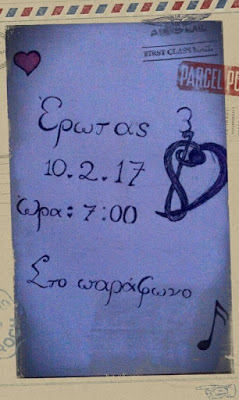 AIR MAIL
FIRST CLASS
PARCEL PO
Ἔρωτας
10.2.17
Ὥρα: 7:00
Στο παράφωνο